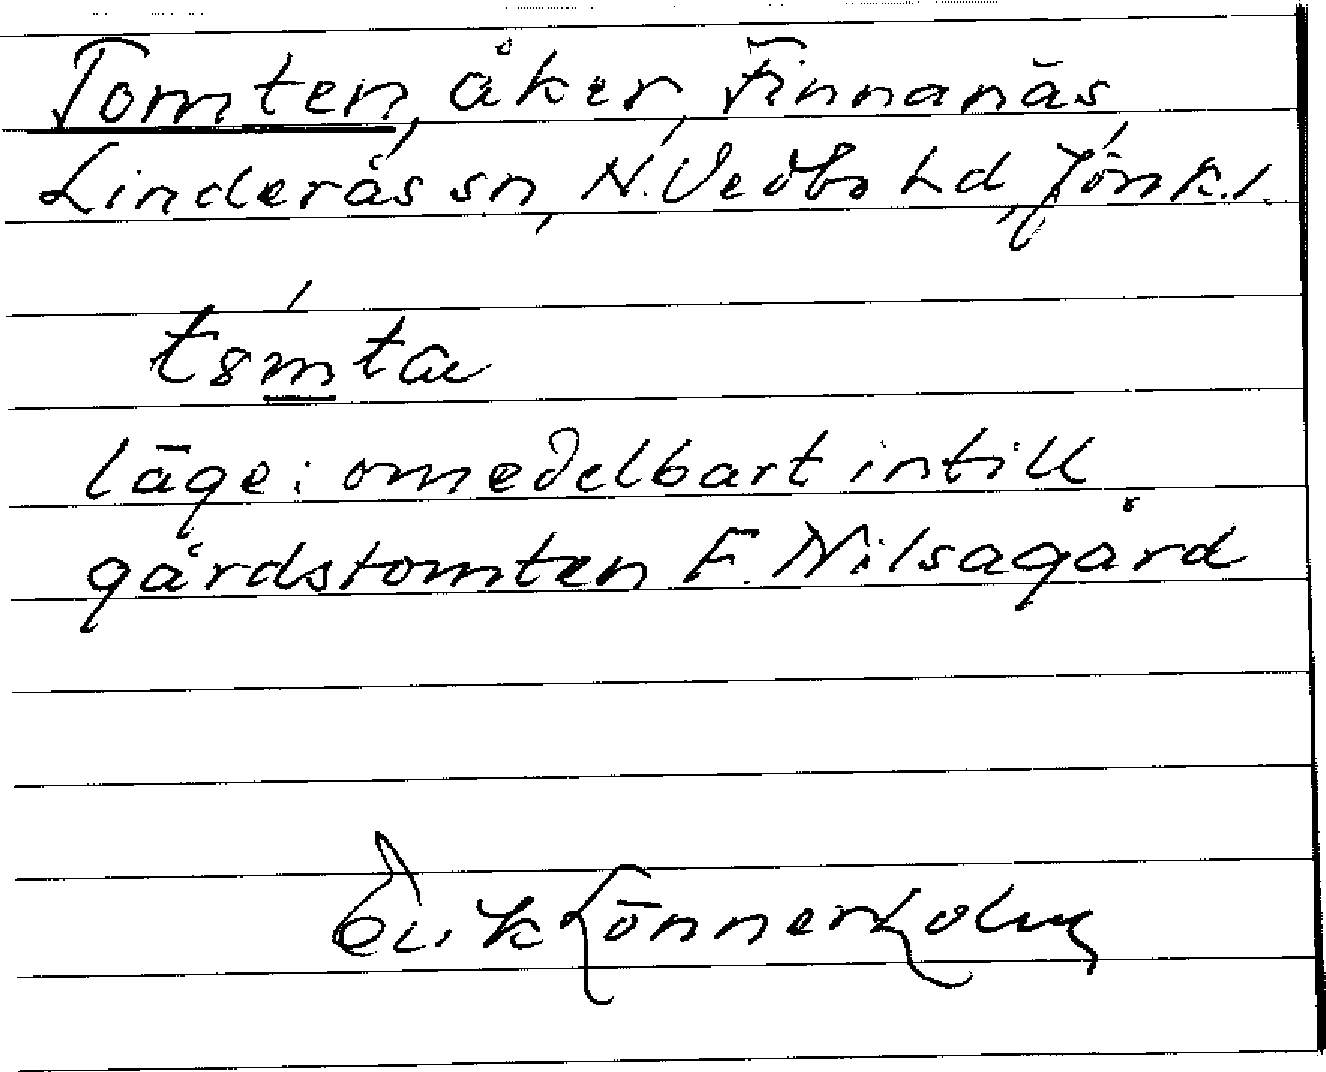 Tomten, åker, Finnanäs
Linderås sn, N. Vedbo hd, Jönk. l.
t8mta
läge: omedelbart intill
gårdstomten F. Nilsagård
Erik Lönnerholm